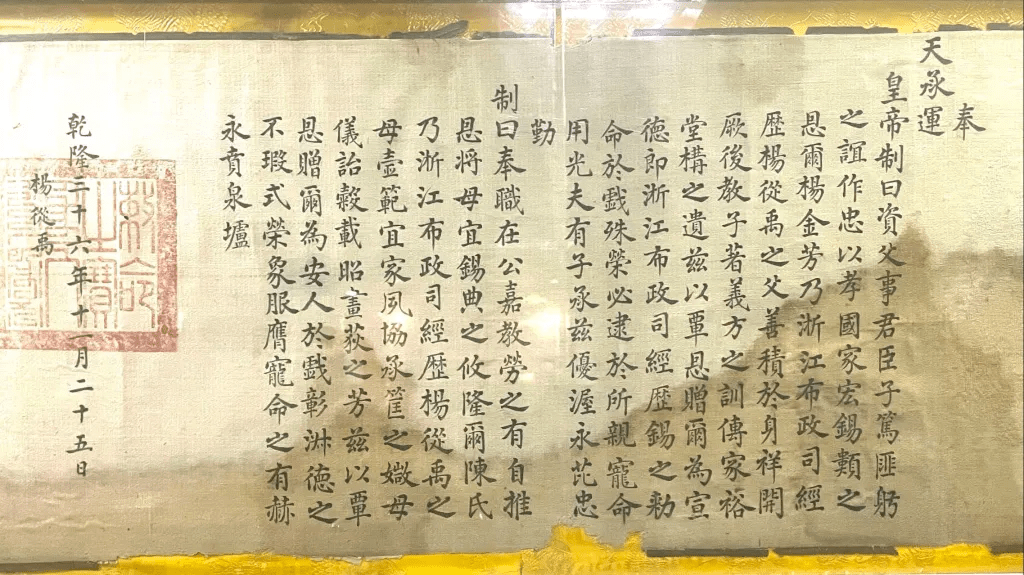 奉
天承運
皇帝制曰資父事君臣子篤匪躬
之誼作忠以孝國家宏錫類之
恩爾楊金芳乃浙江布政司經
歷楊從禹之父善積於身祥開
厥後教子著義方之訓傳家裕
堂構之遺茲以覃恩贈爾為宣
德郎浙江布政司經歷錫之勅
命於戲殊榮必逮於所親寵命
用光夫有子承茲優渥永茂忠
勤
制曰奉職在公嘉教勞之有自推
恩將母宜錫典之攸隆爾陳氏
乃浙江布政司經歷楊從禹之
母壼範宜家夙協承筐之媺母
儀詒穀載昭畫荻之芳茲以覃
恩贈爾為安人於戲彰淑德之
不瑕式榮象服膺寵命之有赫
永賁泉壚
乾隆三十六年十一月二十五日
楊從禹
勅命之寶